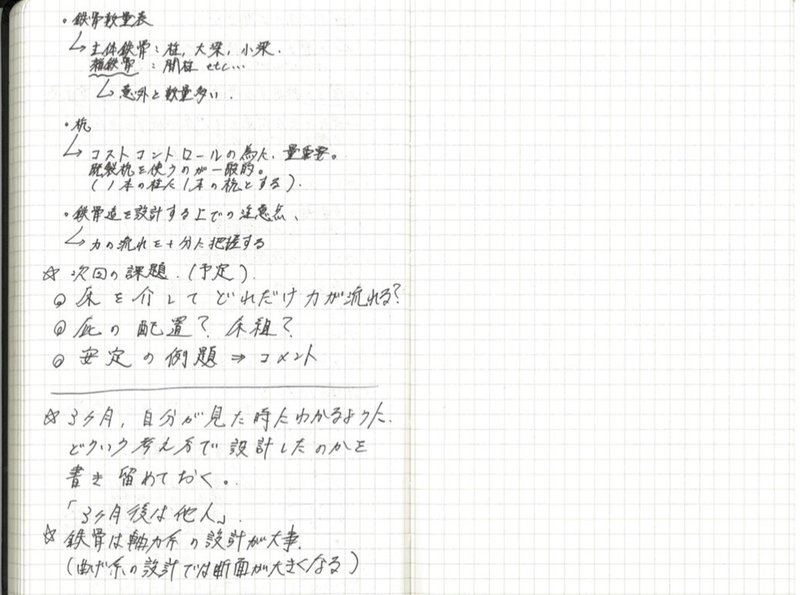 ・鉄骨数量表
↳主体鉄骨：柱，大梁，小梁．
雑鉄骨：間柱 etc…
↳意外と数量多い．
・杭
↳コストコントロールの為に、量重要。
既製杭を使うのが一般的。
(1本の柱に1本の杭とする).
・鉄骨造を設計する上での注意点、
↳力の流れを十分に把握する
☆ 次回の課題．(予定)．
◎ 床を介してどれだけ力が流れる?
◎ の配置? 床組?
◎ 安定の例題 ⇒ コメント
☆ 3ヶ月，自分が見た時にわかるように．
どういう考え方で設計したのかを
書き留めておく。
「3ヶ月後は他人」．
☆ 鉄骨は軸力系の設計が大事．
(曲げ系の設計では断面が大きくなる)